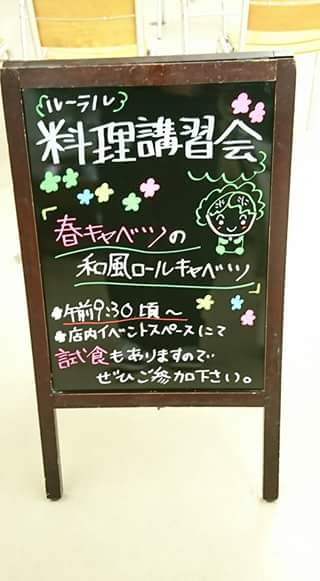 ルーラル
料理講習会
「春キャベツの
和風ロールキャベツ」
*午前9:30頃～
*店内イベントスペースにて
試食もありますので‥
ぜひご参加下さい。